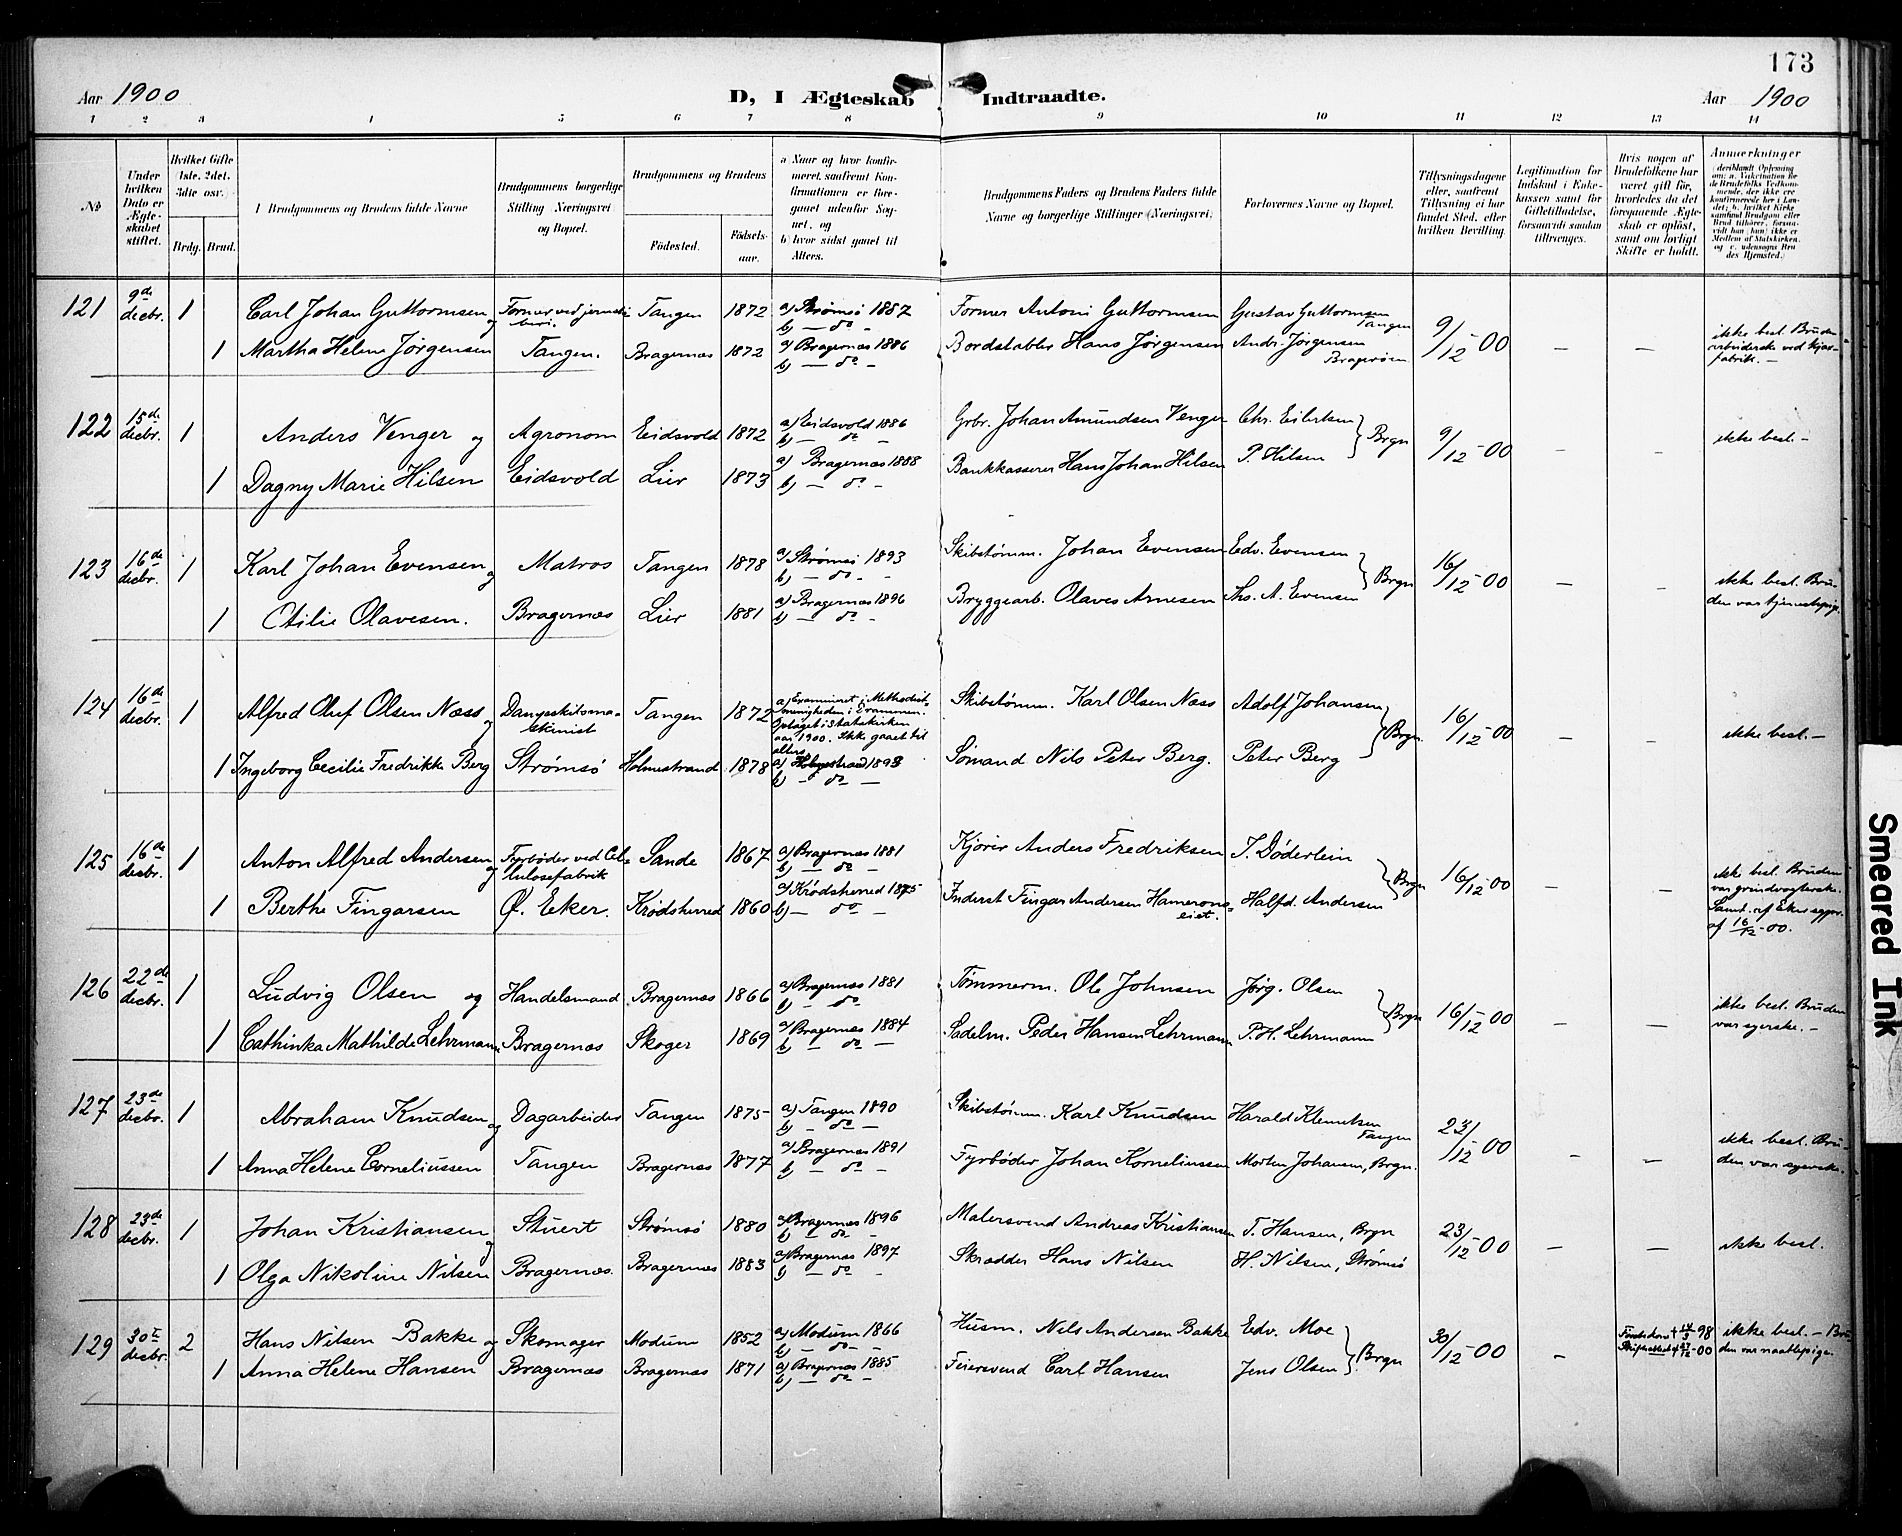 173
Aar 1900
D, I Ægteskab Indtraadte.
Aar 1900
1 2 3 4 5 6 7 8 9 10 11 12 13 14
No
Under hvilken Dato er Ægteskabet stiftet.
Hvilket Gifte (1ste, 2det, 3die osv.)
Brdg. Brud.
Brudgommens og Brudens fulde Navne
Brudgommens borgerlige Stilling Næringsvei og Bopæl.
Brudgommens og Brudens
Födested.
Födselsaar.
a Naar og hvor konfirmeret, saafremt Konfirmationen er foregaaet udenfor Sognet, og
b hvor sidst gaaet til Alters.
Brudgommens Faders og Brudens Faders fulde Navne og borgerlige Stillinger (Næringsvei)
Forlovernes Navne og Bopæl.
Tillysningsdagene eller, saafremt Tillysning ei har fundet Sted, efter hvilken Bevilling.
Legitimation for Indskud i Enkekassen samt for Giftetilladelse, forsaavidt saadan tiltrænges.
Hvis nogen af Brudefolkene har været gift før, hvorledes da det foregaaende Ægteskab er opløst, samt om lovligt Skifte er holdt.
Anmærkninger
121 9de decbr. 1 Carl Johan Guttormsen og Former ved jernstöberi. Tangen 1872 a) Strømsö 1887 b) — do — Former Antoni Guttormsen Gustav Guttormsen Tangen 9/12-00 — —
1 Martha Helene Jørgensen Tangen. Bragernæs 1872 a) Bragernæs 1886 b) — do — Bordstabler Hans Jørgensen Andr. Jørgensen Bragerøen ikke besl. Bruden arbeiderske ved fabrik. —
122 15de decbr. 1 Anders Venger og Agronom Eidsvold 1872 a) Eidsvold 1886 b) — do — Grbr. Johan Amundsen Venger Chr. Eilertsen Brgn 9/12-00 — — ikke besl. —
1 Dagny Marie Hilsen Eidsvold Lier 1873 a) Bragernæs 1888 b) — do — Bankkasserer Hans Johan Hilsen P. Hilsen
123 16de decbr. 1 Karl Johan Evensen og Matros Tangen 1878 a) Strømsö 1893 b) — do — Skibstømm. Johan Evensen Edv. Evensen Brgn 16/12-00 — — ikke besl. Bruden var tjenestepige.
1 Otilie Olavesen. Bragernæs Lier 1881 a) Bragernæs 1896 b) — do — Bryggearb. Olaves Arnesen Ths. A. Evensen
124 16de decbr. 1 Alfred Oluf Olsen Næss og Dampskibsmaskinist Tangen 1872 a) Examineret i Methodistmenigheden i Drammen. Optaget i Statskirken aar 1900. Ikke gaaet til alters Skibstømm. Karl Olsen Næss Adolf Johansen Brgn. 16/12-00 — — ikke besl. —
1 Ingeborg Cecilie Fredrikke Berg Strømsö Holmestrand 1878 a) Holmestrand 1893 b) — do — Sömand Nils Peter Berg. Peter Berg
125 16de decbr. 1 Anton Alfred Andersen og Fyrbøder ved Cellulosefabrik Sande 1867 a) Bragernæs 1881 b) — do — Kjører Anders Fredriksen J. Døderlein Brgn 16/12-00 — — ikke besl. Bruden var
1 Berthe Fingarsen Ø. Eker. Krødsherred 1860 a) Krødsherred 1875 b) — do — Inderst Fingar Andersen Hamerons-eiet. Halfd. Andersen Samt. af Eker sgpr. af 16/12-00.
126 22de decbr. 1 Ludvig Olsen og Handelsmand. Bragernæs 1866 a) Bragernæs 1881 b) — do — Tømmerm. Ole Johnsen Jørg. Olsen Brgn 16/12-00 — — ikke besl. Bruden var syerske. —
1 Cathinka Mathilde Lehrmann Bragernæs Skoger 1869 a) Bragernæs 1884 b) — do — Sadelm. Peder Hansen Lehrmann P. H. Lehrmann
127 23de decbr. 1 Abraham Knudsen og Dagarbeider Tangen 1875 a) Tangen 1890 b) — do — Skibstømm. Karl Knudsen Harald Klemetsen Tangen 23/12-00 — — ikke besl. Bruden var syerske.
1 Anna Helene Corneliussen Tangen Bragernæs 1877 a) Bragernæs 1891 b) — do — Fyrbøder Johan Korneliussen Morten Johansen, Brgn.
128 23de decbr. 1 Johan Kristiansen og Stuert Strømsö 1880 a) Bragernæs 1896 b) — do — Malersvend Andreas Kristiansen T. Hansen, Brgn 23/12-00 — — ikke besl.
1 Olga Nikoline Nilsen Bragernæs. Bragernæs 1883 a) Bragernæs 1897 b) — do — Skrædder Hans Nilsen H. Nilsen, Strømsö
129 30te decbr. 2 Hans Nilsen Bakke og Skomager Modum 1852 a) Modum 1866 b) — do — Husm. Nils Andersen Bakke Edv. Moe Brgn 30/12-00 — ikke besl. — Bruden var
1 Anna Helene Hansen Bragernæs Bragernæs 1871 a) Bragernæs 1885 b) — do — Feiersvend Carl Hansen Jens Olsen
Smeared Ink